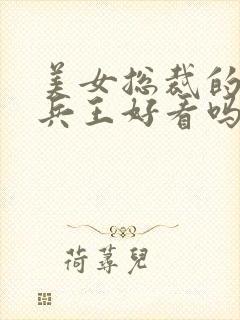 美女总裁的
兵王好看吗
荷荨儿